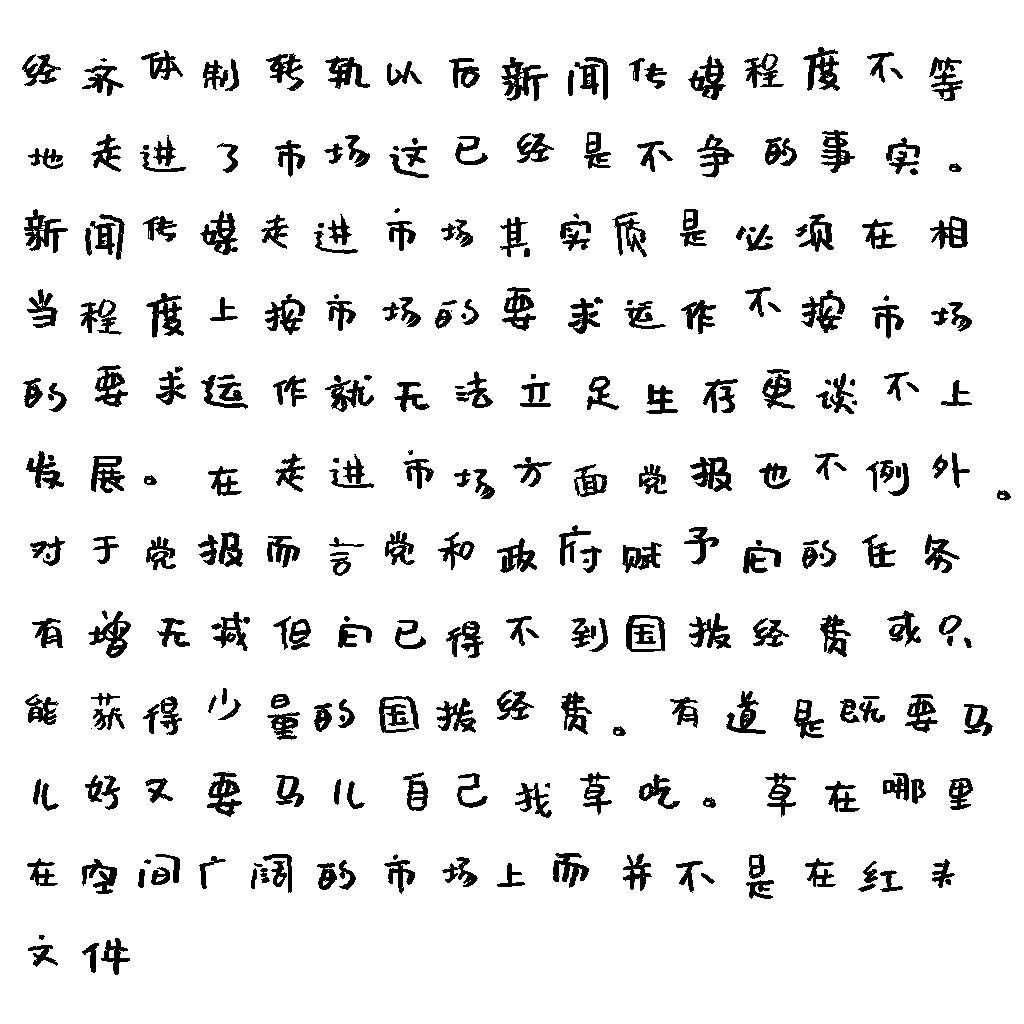 经济体制转轨以后新闻传媒程度不等
地走进了市场这已经是不争的事实。
新闻传媒走进市场其实质是必须在相
当程度上按市场的要求运作不按市场
的要求运作就无法立足生存更谈不上
发展。在走进市场方面党报也不例外。
对于党报而言党和政府赋予它的任务
有增无减但它已得不到国拨经费或只
能获得少量的国拨经费。有道是既要马
儿好又要马儿自己找草吃。草在哪里
在空间广阔的市场上而并不是在红头
文件